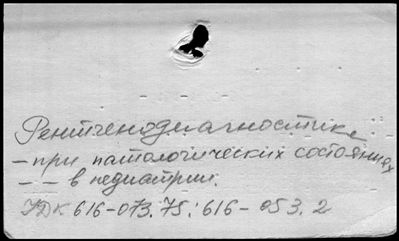 Рентгенодиагностика
- при патологических состояниях
- - в педиатрии.
УДК 616-073.75:616-053.2